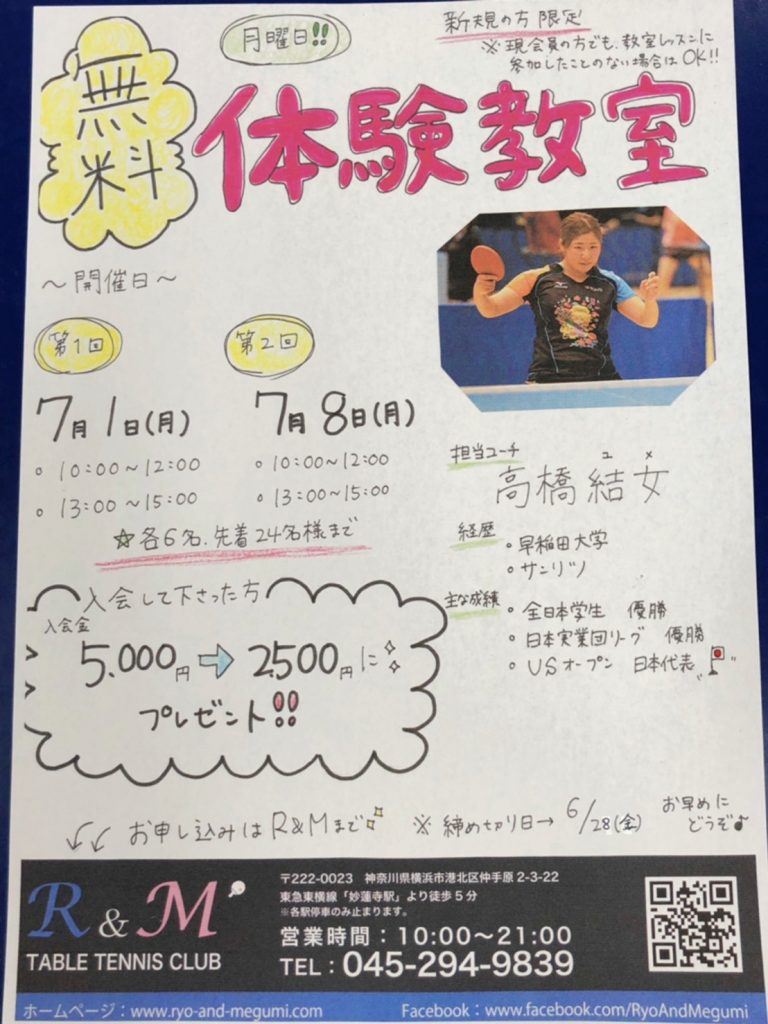 無料
月曜日!!
新規の方 限定
※現会員の方でも、教室レッスンに
参加したことのない場合はOK!!
体験教室
〜開催日〜
第1回
7月1日(月)
○ 10:00〜12:00
○ 13:00〜15:00
第2回
7月8日(月)
○ 10:00〜12:00
○ 13:00〜15:00
☆各6名.先着24名様まで
担当コーチ
ユ メ
高橋結女
経歴
○早稲田大学
○サンリツ
主な成績
○全日本学生 優勝
○日本実業団リーグ 優勝
○USオープン 日本代表
入会して下さった方
入会金
5.000円⇒2.500円に
プレゼント!!
お申し込みはR&Mまで
※ 締め切り日→ 6/28(金)
お早めに
どうぞ♪
R & M
TABLE TENNIS CLUB
〒222-0023 神奈川県横浜市港北区仲手原 2-3-22
東急東横線「妙蓮寺駅」より徒歩5分
※各駅停車のみ止まります。
営業時間:10:00〜21:00
TEL:045-294-9839
ホームページ:www.ryo-and-megumi.com
Facebook:www.facebook.com/RyoAndMegumi